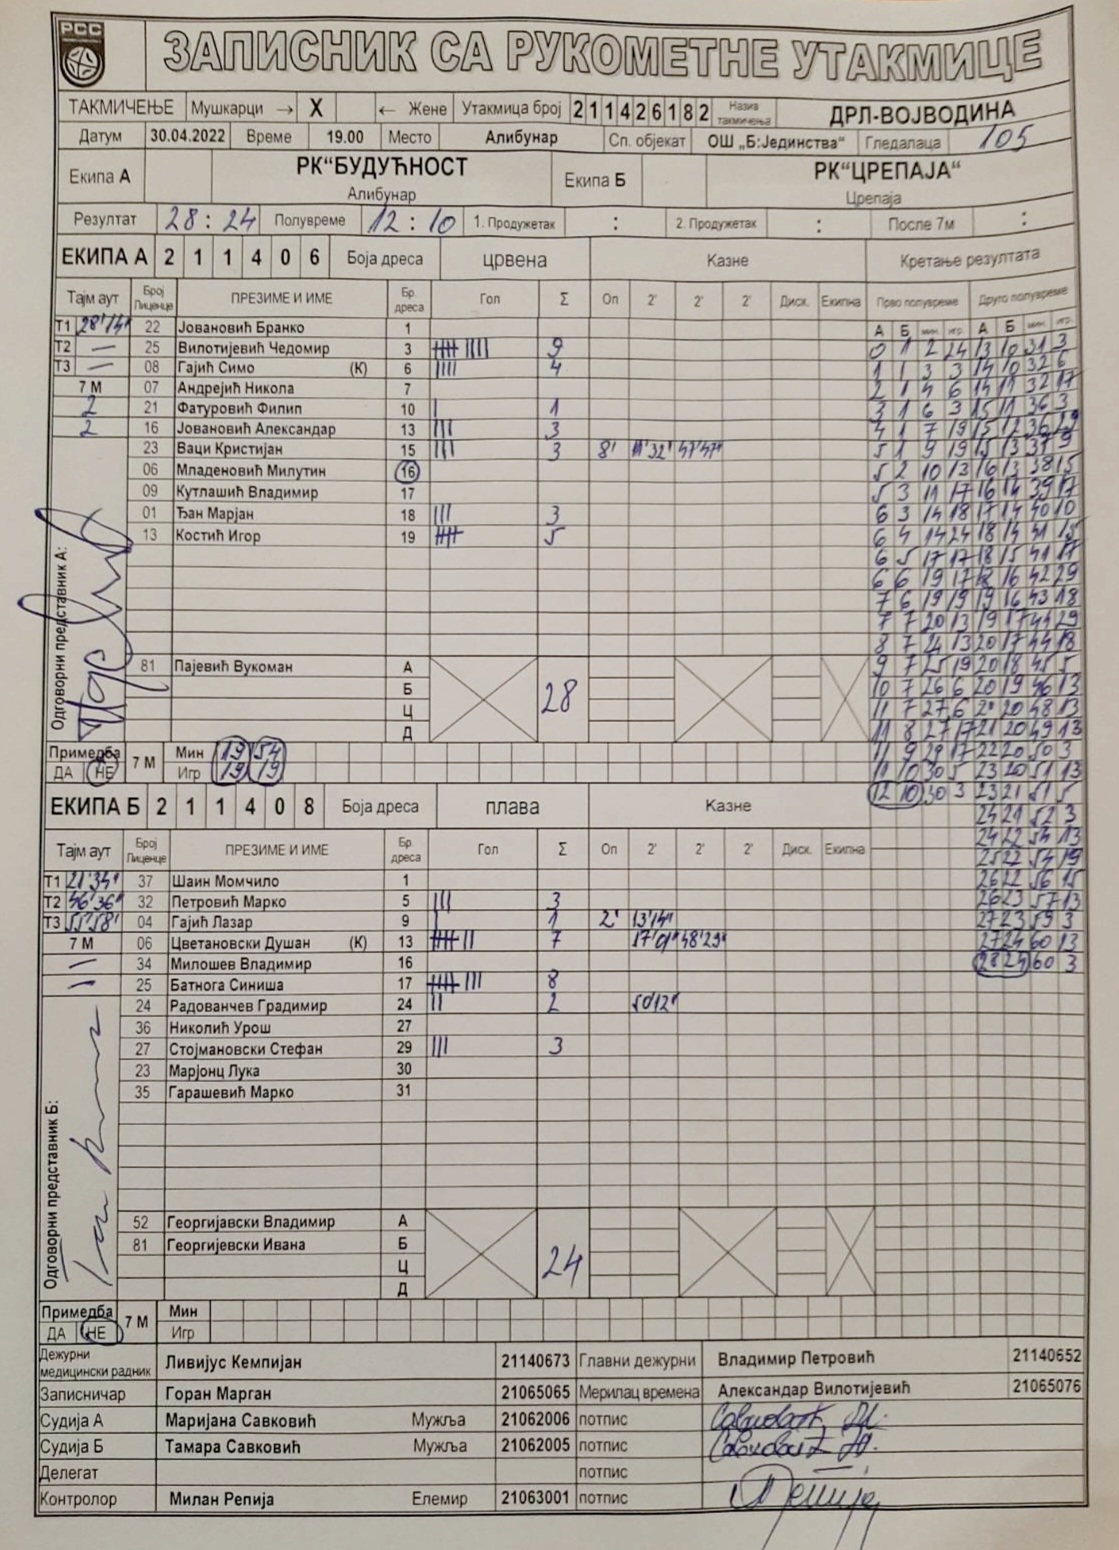 РСС
ЗАПИСНИК СА РУКОМЕТНЕ УТАКМИЦЕ
ТАКМИЧЕЊЕ Мушкарци → X ← Жене Утакмица број 211426182 Назив такмичења ДРЛ-ВОЈВОДИНА
Датум 30.04.2022 Време 19.00 Место Алибунар Сп. објекат ОШ „Б:Јединства“ Гледалаца 105
Екипа А РК“БУДУЋНОСТ Екипа Б РК“ЦРЕПАЈА“
Алибунар Црепаја
Резултат 28:24 Полувреме 12:10 1. Продужетак : 2. Продужетак : После 7м :
ЕКИПА А 2 1 1 4 0 6 Боја дреса црвена Казне Кретање резултата
Тајм аут Број Лиценце ПРЕЗИМЕ И ИМЕ Бр. дреса Гол Σ Оп 2' 2' 2' Диск. Екипна Прво полувреме Друго полувреме
А Б мин. игр. А Б мин. игр.
Т1 22 Јовановић Бранко 1
Т2 — 25 Вилотијевић Чедомир 3 9 0 1 2 24 13 10 31 3
Т3 — 08 Гајић Симо (К) 6 4 1 1 3 3 14 10 32 6
7 М 07 Андрејић Никола 7 2 1 4 6 14 11 32 17
2 21 Фатуровић Филип 10 1 3 1 6 3 15 11 36 3
2 16 Јовановић Александар 13 3 4 1 7 19 15 12 36 29
23 Ваци Кристијан 15 3 8' 47'47" 5 1 9 19 15 13 37 9
06 Младеновић Милутин 16 5 2 10 13 16 13 38 15
09 Кутлашић Владимир 17 5 3 11 17 16 14 39 17
01 Ђан Марјан 18 3 6 3 14 18 17 14 40 10
13 Костић Игор 19 5 6 4 14 24 18 14 41 15
6 5 17 17 18 15 41 17
6 6 19 17 18 16 42 29
7 6 19 19 19 16 43 18
7 7 20 13 19 17 44 29
8 7 24 13 20 17 44 18
Одговорни представник А:
81 Пајевић Вукоман А 28 9 7 25 19 20 18 45 5
Б 10 7 26 6 20 19 46 13
Ц 11 7 27 6 21 20 48 13
Д 11 8 27 17 21 20 49 13
Примедба 7 М Мин 19 54 11 9 29 17 22 20 50 3
ДА НЕ Игр 19 19 11 10 30 5 23 20 51 13
12 10 30 3 23 21 51 5
ЕКИПА Б 2 1 1 4 0 8 Боја дреса плава Казне
24 21 52 3
24 22 54 13
Тајм аут Број Лиценце ПРЕЗИМЕ И ИМЕ Бр. дреса Гол Σ Оп 2' 2' 2' Диск. Екипна 25 22 54 19
Т1 21'34" 37 Шаин Момчило 1 26 22 56 15
Т2 46'36" 32 Петровић Марко 5 3 26 23 57 13
Т3 55'58" 04 Гајић Лазар 9 1 2' 13'14" 27 23 59 3
7 М 06 Цветановски Душан (К) 13 7 17'01" 48'29" 27 24 60 13
— 34 Милошев Владимир 16 28 24 60 3
— 25 Батнога Синиша 17 8
24 Радованчев Градимир 24 2 50'12"
36 Николић Урош 27
27 Стојмановски Стефан 29 3
23 Марјонц Лука 30
35 Гарашевић Марко 31
Одговорни представник Б:
52 Георгијавски Владимир А 24
81 Георгијевски Ивана Б
Ц
Д
Примедба 7 М Мин
ДА НЕ Игр
Дежурни медицински радник Ливијус Кемпијан 21140673 Главни дежурни Владимир Петровић 21140652
Записничар Горан Марган 21065065 Мерилац времена Александар Вилотијевић 21065076
Судија А Маријана Савковић Мужља 21062006 потпис
Судија Б Тамара Савковић Мужља 21062005 потпис
Делегат потпис
Контролор Милан Репија Елемир 21063001 потпис